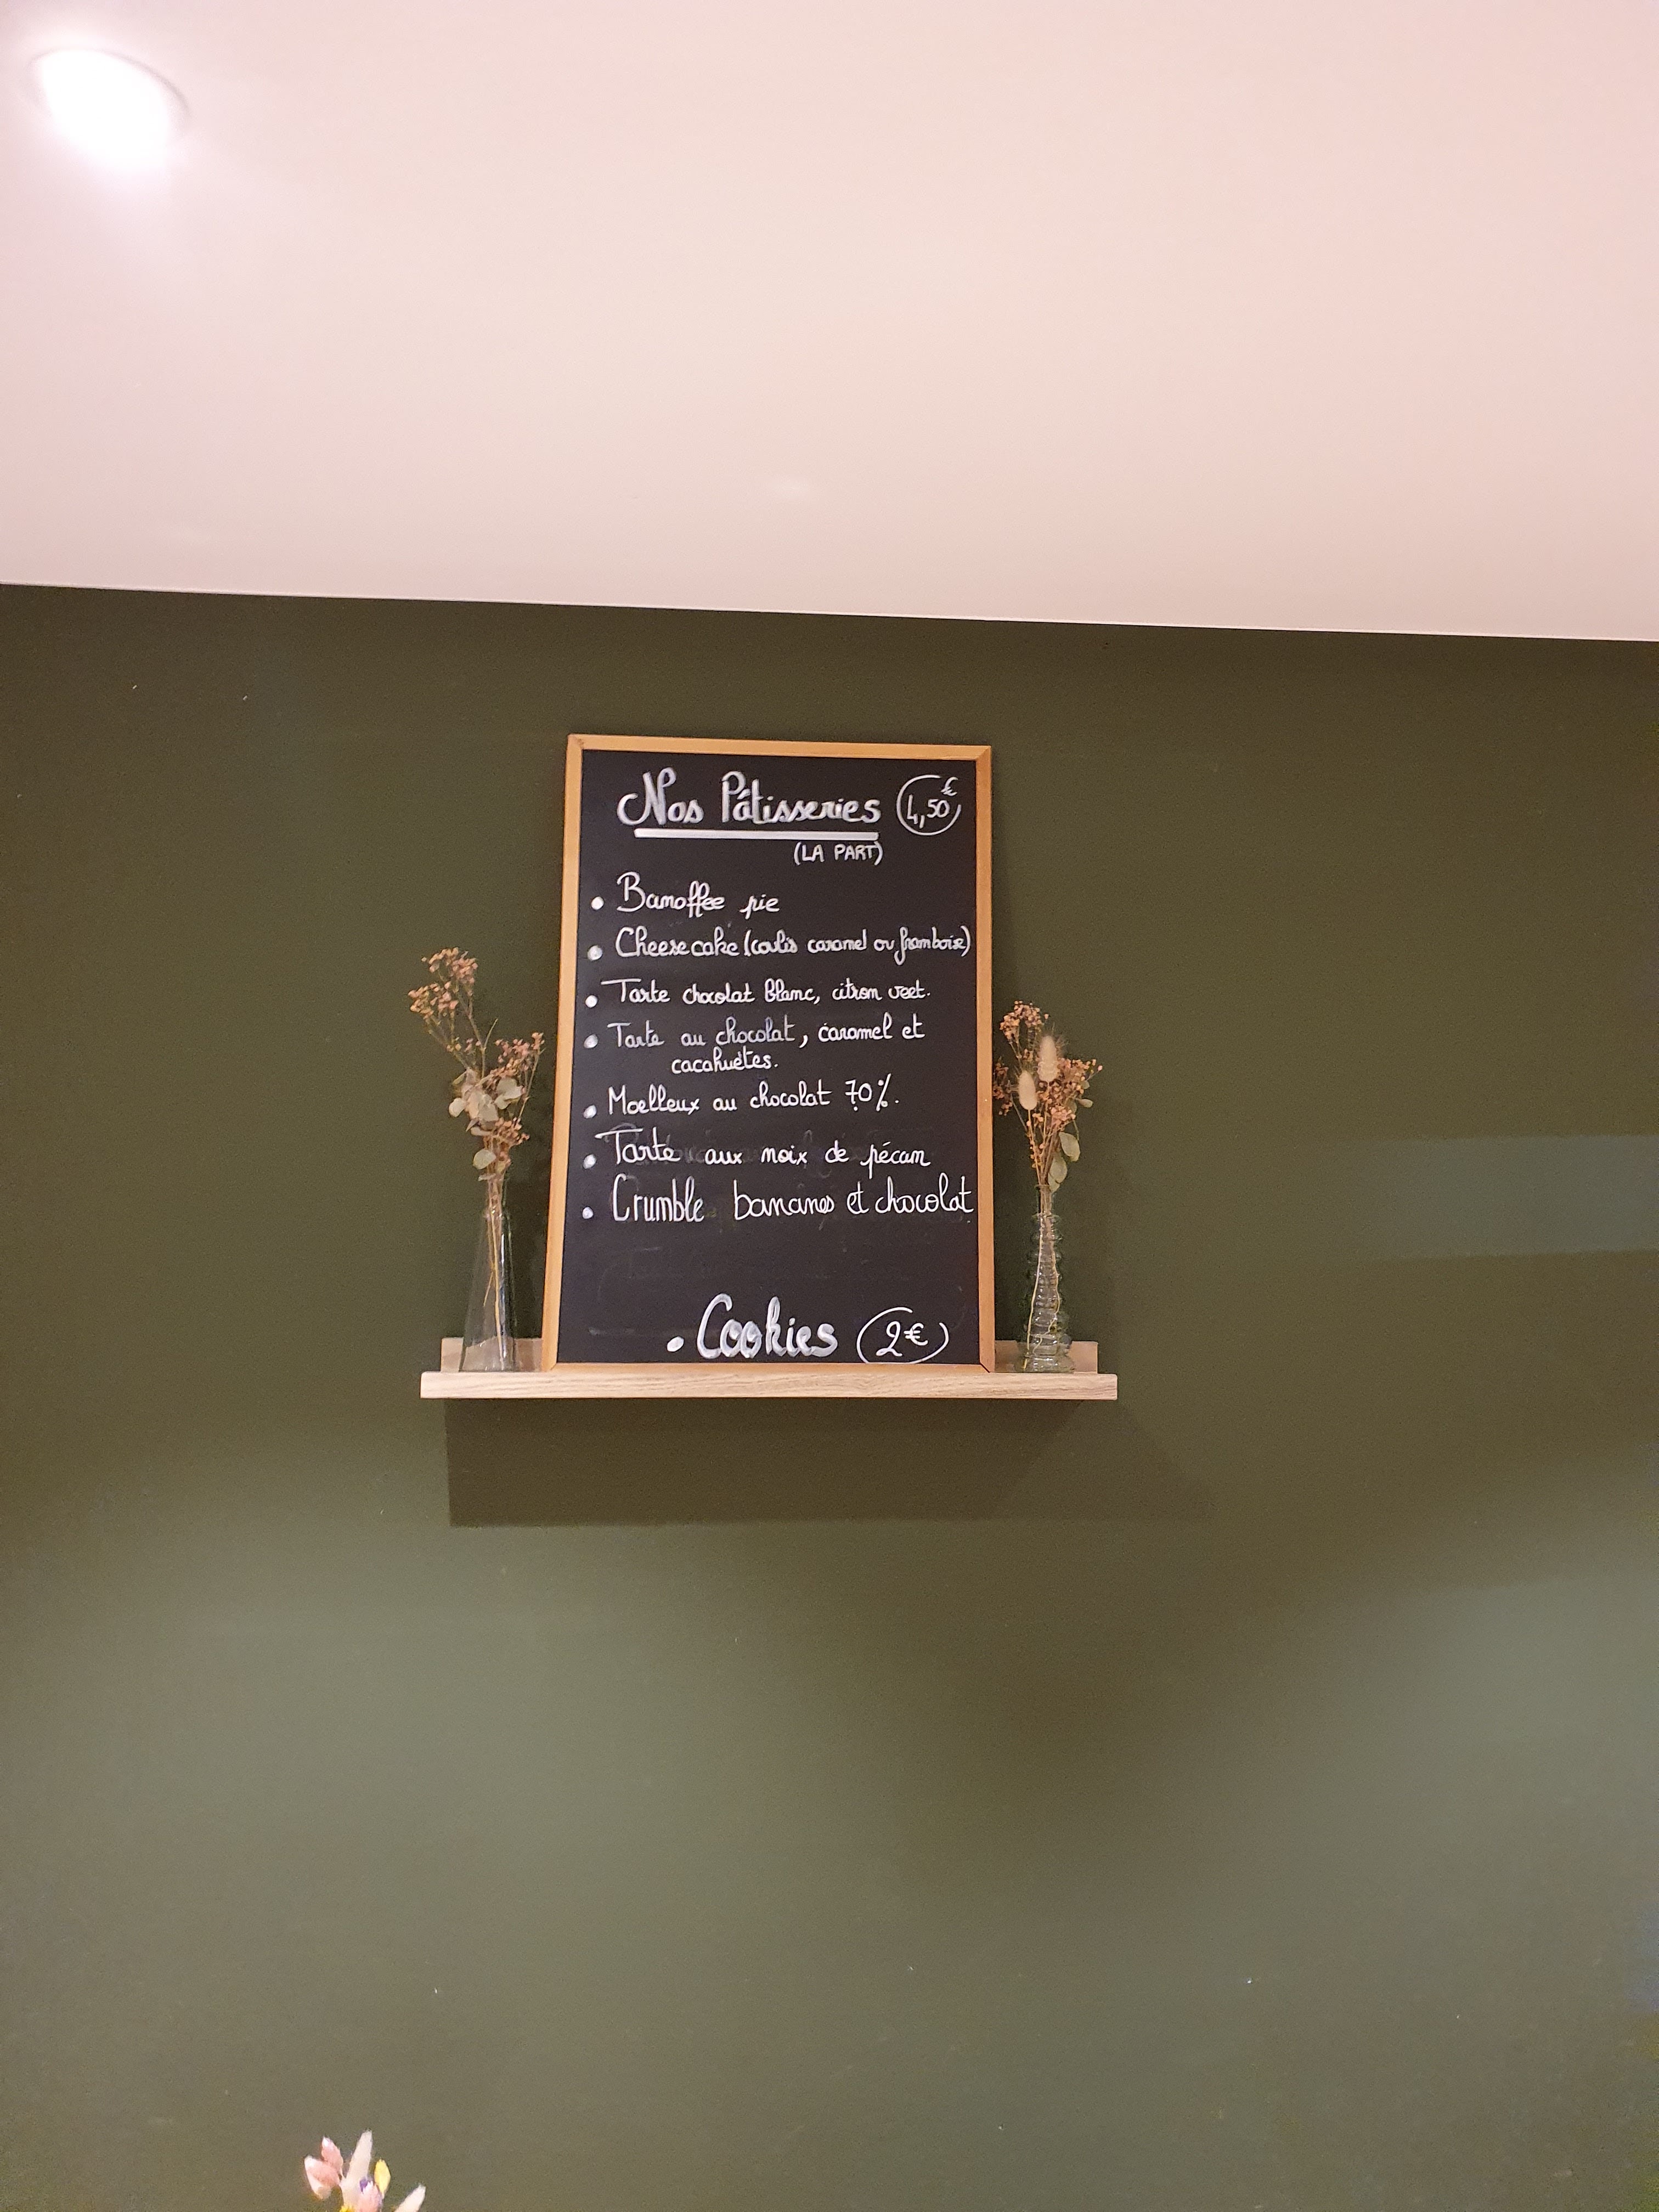 Nos Pâtisseries 4,50€
(LA PART)
• Banoffee pie
• Cheesecake (coulis caramel ou framboise)
• Tarte chocolat blanc, citron vert.
• Tarte au chocolat, caramel et
cacahuètes.
• Moelleux au chocolat 70%.
• Tarte aux noix de pécan
• Crumble bananes et chocolat
• Cookies 2€